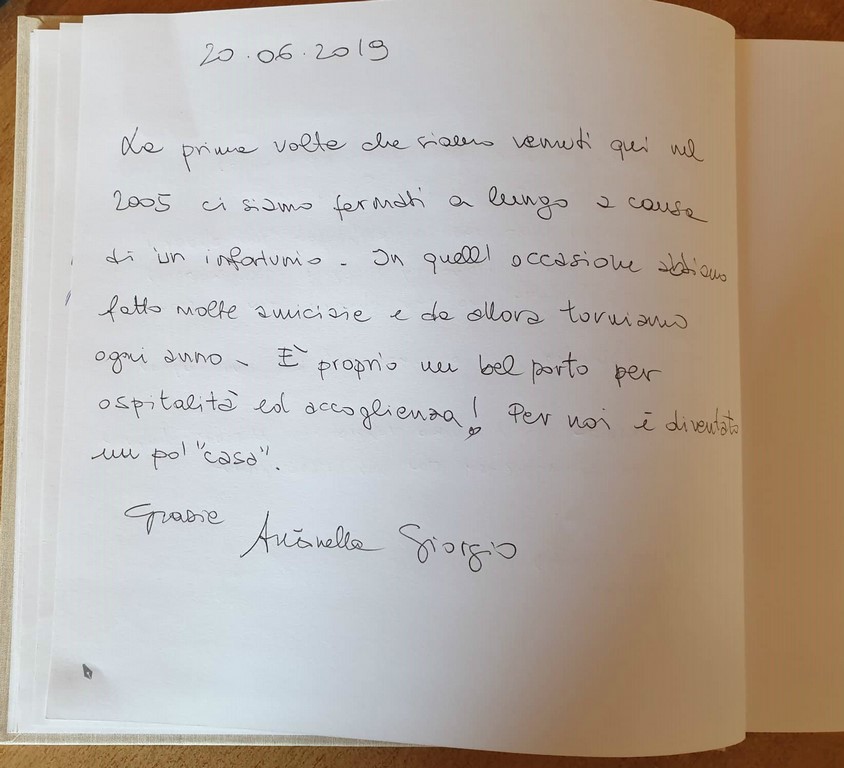 20.06.2019
La prima volta che siamo venuti qui nel
2005 ci siamo fermati a lungo a causa
di un infortunio. In quell'occasione abbiamo
fatto molte amicizie e da allora torniamo
ogni anno. È proprio un bel porto per
ospitalità ed accoglienza! Per noi è diventato
un po' "casa".
Grazie
Antonella Giorgio